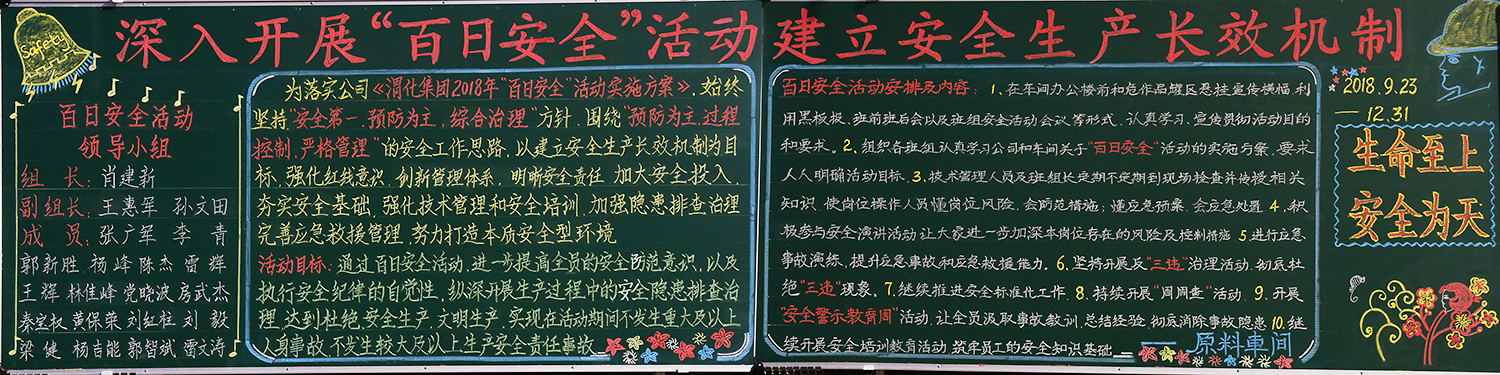 Safety
深入开展“百日安全”活动 建立安全生产长效机制
百日安全活动
领导小组
组 长：肖建新
副组长：王惠军 孙文田
成 员：张广军 李 青
郭新胜 杨峰 陈杰 雷辉
王辉 林佳峰 党晓波 房武杰
秦宝权 黄保荣 刘红柱 刘 毅
梁 健 杨吉能 郭智斌 雷文涛
为落实公司《渭化集团2018年“百日安全”活动实施方案》，始终
坚持“安全第一，预防为主，综合治理”方针，围绕“预防为主，过程
控制，严格管理”的安全工作思路，以建立安全生产长效机制为目
标，强化红线意识，创新管理体系，明晰安全责任，加大安全投入，
夯实安全基础，强化技术管理和安全培训，加强隐患排查治理
完善应急救援管理，努力打造本质安全型环境
活动目标：通过百日安全活动，进一步提高全员的安全防范意识，以及
执行安全纪律的自觉性，纵深开展生产过程中的安全隐患排查治
理，达到杜绝，安全生产，文明生产，实现在活动期间不发生重大及以上
人身事故，不发生较大及以上生产安全责任事故
百日安全活动安排及内容：1、在车间办公楼前和危作品罐区悬挂宣传横幅，利
用黑板报、班前班后会以及班组安全活动会议等形式，认真学习、宣传贯彻活动目的
和要求。2、组织各班组认真学习公司和车间关于“百日安全”活动的实施方案，要求
人人明确活动目标。3、技术管理人员及班组长定期不定期到现场检查并传授相关
知识，使岗位操作人员懂岗位风险，会防范措施；懂应急预案，会应急处置 4、积
极参与安全演讲活动让大家进一步加深本岗位存在的风险及控制措施 5、进行应急
事故演练，提升应急事故和应急救援能力。6、坚持开展反“三违”治理活动，彻底杜
绝“三违”现象。7、继续推进安全标准化工作 8、持续开展“周周查”活动 9、开展
“安全警示教育周”活动，让全员汲取事故教训，总结经验，彻底消除事故隐患 10、继
续开展安全培训教育活动，筑牢员工的安全知识基础
— 原料車间
2018.9.23
— 12.31
生命至上
安全为天